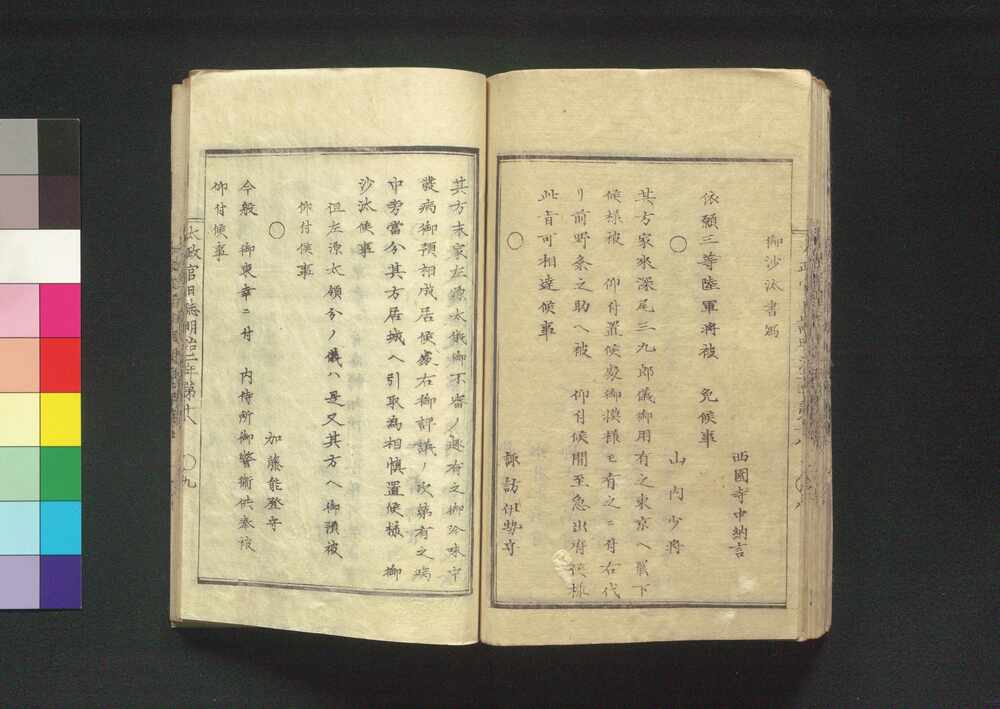 御沙汰書写
西園寺中納言
依願三等陸軍将被　免候事
○　山内少将
其方家来深尾三九郎儀御用有之東京ヘ罷下
候様被　仰付置候処御模様モ有之ニ付右代
リ前野条之助ヘ被　仰付候間至急出府候様
此旨可相達候事
○　諏訪伊勢守
其方末家左源太儀御不審ノ趣有之御吟味中
発病御預相成居候処右御評議ノ次第有之病
中旁当分其方居城ヘ引取為相慎置候様　御
沙汰候事
但左源太領分ノ儀ハ是又其方ヘ御預被
仰付候事
○　加藤能登守
今般　御東幸ニ付　内侍所御警衛供奉被
仰付候事
太政官日誌明治二年第廿八　○九